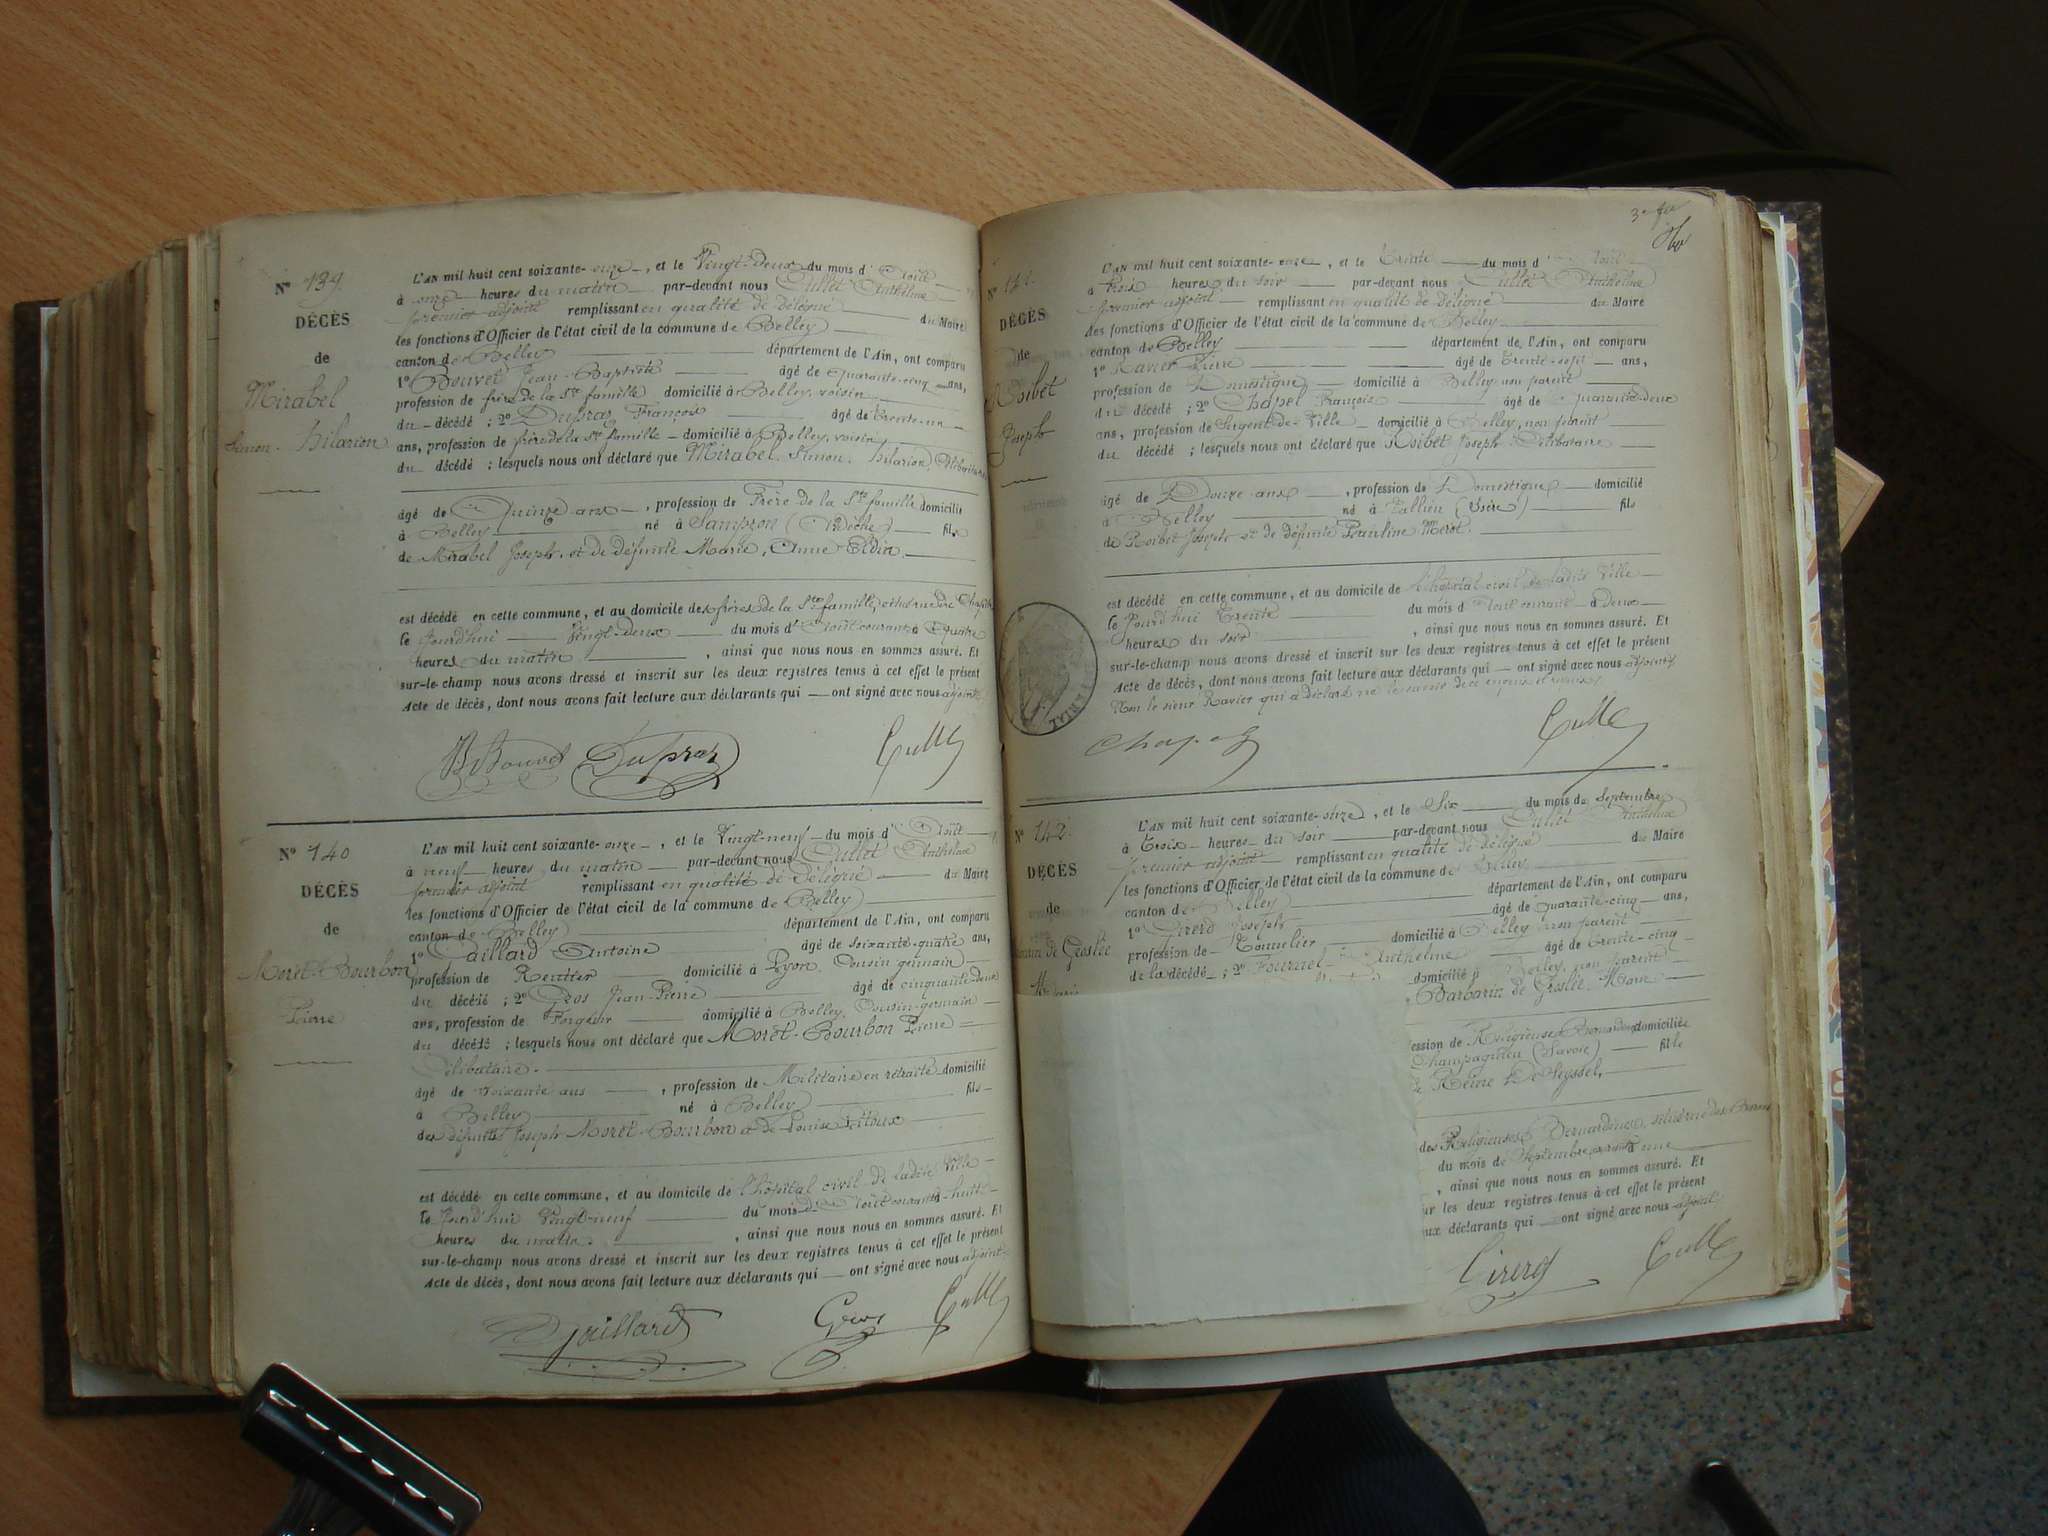 N° 139
DÉCÈS
de
Mirabel
Simon. hilarion
L'AN mil huit cent soixante-onze, et le Vingt-deux du mois d'Août
à onze heures du matin par-devant nous Cullet Anthelme
premier adjoint remplissant en qualité de délégué du Maire
les fonctions d'Officier de l'état civil de la commune de Belley
canton de Belley département de l'Ain, ont comparu
1° Bouvet Jean-Baptiste âgé de Quarante-cinq ans,
profession de frère de la Ste famille domicilié à Belley, voisin
du décédé ; 2° Dupraz François âgé de trente-un
ans, profession de frère de la Ste famille domicilié à Belley, voisin
du décédé ; lesquels nous ont déclaré que Mirabel, Simon. hilarion, Célibataire
âgé de Quinze ans, profession de Frère de la Ste famille domicilié
à Belley né à Sampzon (Ardèche) fils
de Mirabel Joseph, et de défunte Marie, Anne Eldin
est décédé en cette commune, et au domicile des frères de la Ste famille,
le Jourd'hui Vingt-deux du mois d'Août courant à Quatre
heures du matin, ainsi que nous nous en sommes assuré. Et
sur-le-champ nous avons dressé et inscrit sur les deux registres tenus à cet effet le présent
Acte de décès, dont nous avons fait lecture aux déclarants qui ont signé avec nous adjoint
Bouvet Dupraz Cullet
N° 140
DÉCÈS
de
Moret-Bourbon
Pierre
L'AN mil huit cent soixante-onze, et le Vingt-neuf du mois d'Août
à neuf heures du matin par-devant nous Cullet Anthelme
premier adjoint remplissant en qualité de délégué du Maire
les fonctions d'Officier de l'état civil de la commune de Belley
canton de Belley département de l'Ain, ont comparu
1° Gaillard Antoine âgé de soixante-quatre ans,
profession de Rentier domicilié à Lyon, Cousin germain
du décédé ; 2° Gros Jean-Pierre âgé de cinquante-deux
ans, profession de Forgeur domicilié à Belley, Cousin-germain
du décédé ; lesquels nous ont déclaré que Moret-Bourbon Pierre
Célibataire.
âgé de soixante ans, profession de Militaire en retraite domicilié
à Belley né à Belley fils
des défunts Joseph Moret-Bourbon et de Louise
est décédé en cette commune, et au domicile de l'hôpital civil de ladite Ville
le Jourd'hui Vingt-neuf du mois d'Août courant à huit
heures du matin, ainsi que nous nous en sommes assuré. Et
sur-le-champ nous avons dressé et inscrit sur les deux registres tenus à cet effet le présent
Acte de décès, dont nous avons fait lecture aux déclarants qui ont signé avec nous adjoint
Gaillard Gros Cullet
N° 141
DÉCÈS
de
Roibet
Joseph
L'AN mil huit cent soixante-onze, et le Trente du mois d'Août
à Trois heures du soir par-devant nous Cullet Anthelme
premier adjoint remplissant en qualité de délégué du Maire
les fonctions d'Officier de l'état civil de la commune de Belley
canton de Belley département de l'Ain, ont comparu
1° Ravier Pierre âgé de Trente-sept ans,
profession de Domestique domicilié à Belley, non parent
du décédé ; 2° Chapel François âgé de Quarante-deux
ans, profession de Sergent-de-Ville domicilié à Belley, non parent
du décédé ; lesquels nous ont déclaré que Roibet Joseph, Célibataire
âgé de Douze ans, profession de Domestique domicilié
à Belley né à (Isère) fils
de Roibet Joseph et de défunte Pauline
est décédé en cette commune, et au domicile de l'hôpital civil de ladite Ville
le Jourd'hui Trente du mois d'Août courant à Deux
heures du soir, ainsi que nous nous en sommes assuré. Et
sur-le-champ nous avons dressé et inscrit sur les deux registres tenus à cet effet le présent
Acte de décès, dont nous avons fait lecture aux déclarants qui ont signé avec nous adjoint,
Non le sieur Ravier qui a déclaré ne le savoir de ce enquis et requis
Chapel Cullet
N° 142
DÉCÈS
de
de Groslée
L'AN mil huit cent soixante-onze, et le Six du mois de Septembre
à Trois heures du soir par-devant nous Cullet Anthelme
premier adjoint remplissant en qualité de délégué du Maire
les fonctions d'Officier de l'état civil de la commune de Belley
canton de Belley département de l'Ain, ont comparu
1° Girerd Joseph âgé de quarante-cinq ans,
profession de Tonnelier domicilié à Belley non parent
de la décédé ; 2° Anthelme âgé de trente-cinq
domicilié à Belley, non parent
Barbarin de Groslée
ession de Religieuse Bernardine domiciliée
Champagneu (Savoie) fille
Reine De Seyssel,
des Religieuses Bernardines,
du mois de Septembre courant à une
, ainsi que nous nous en sommes assuré. Et
ur les deux registres tenus à cet effet le présent
ux déclarants qui ont signé avec nous adjoint
Girerd Cullet